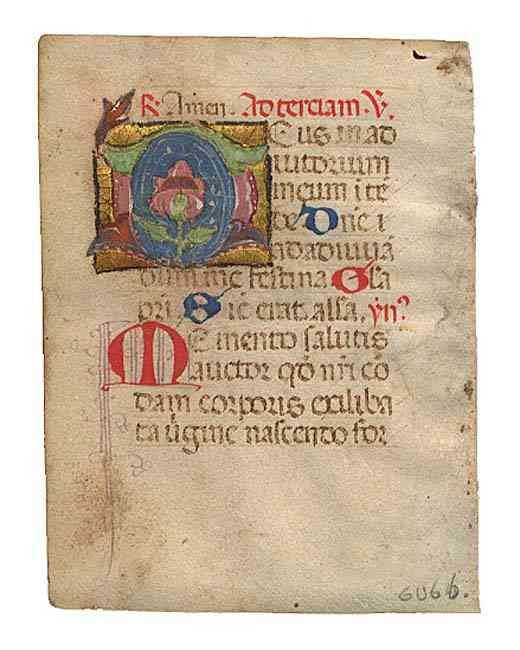 R. Amen. Ad terciam. V.
Deus in ad
iutorium
meum ite
de Dne i
ndadiuuā
dum me festina Gla
pri. Sic erat. alla. yn?
Memento salutis
auctor qd nri co
dam corporis exaliba
ta uirgine nascendo for
6066.